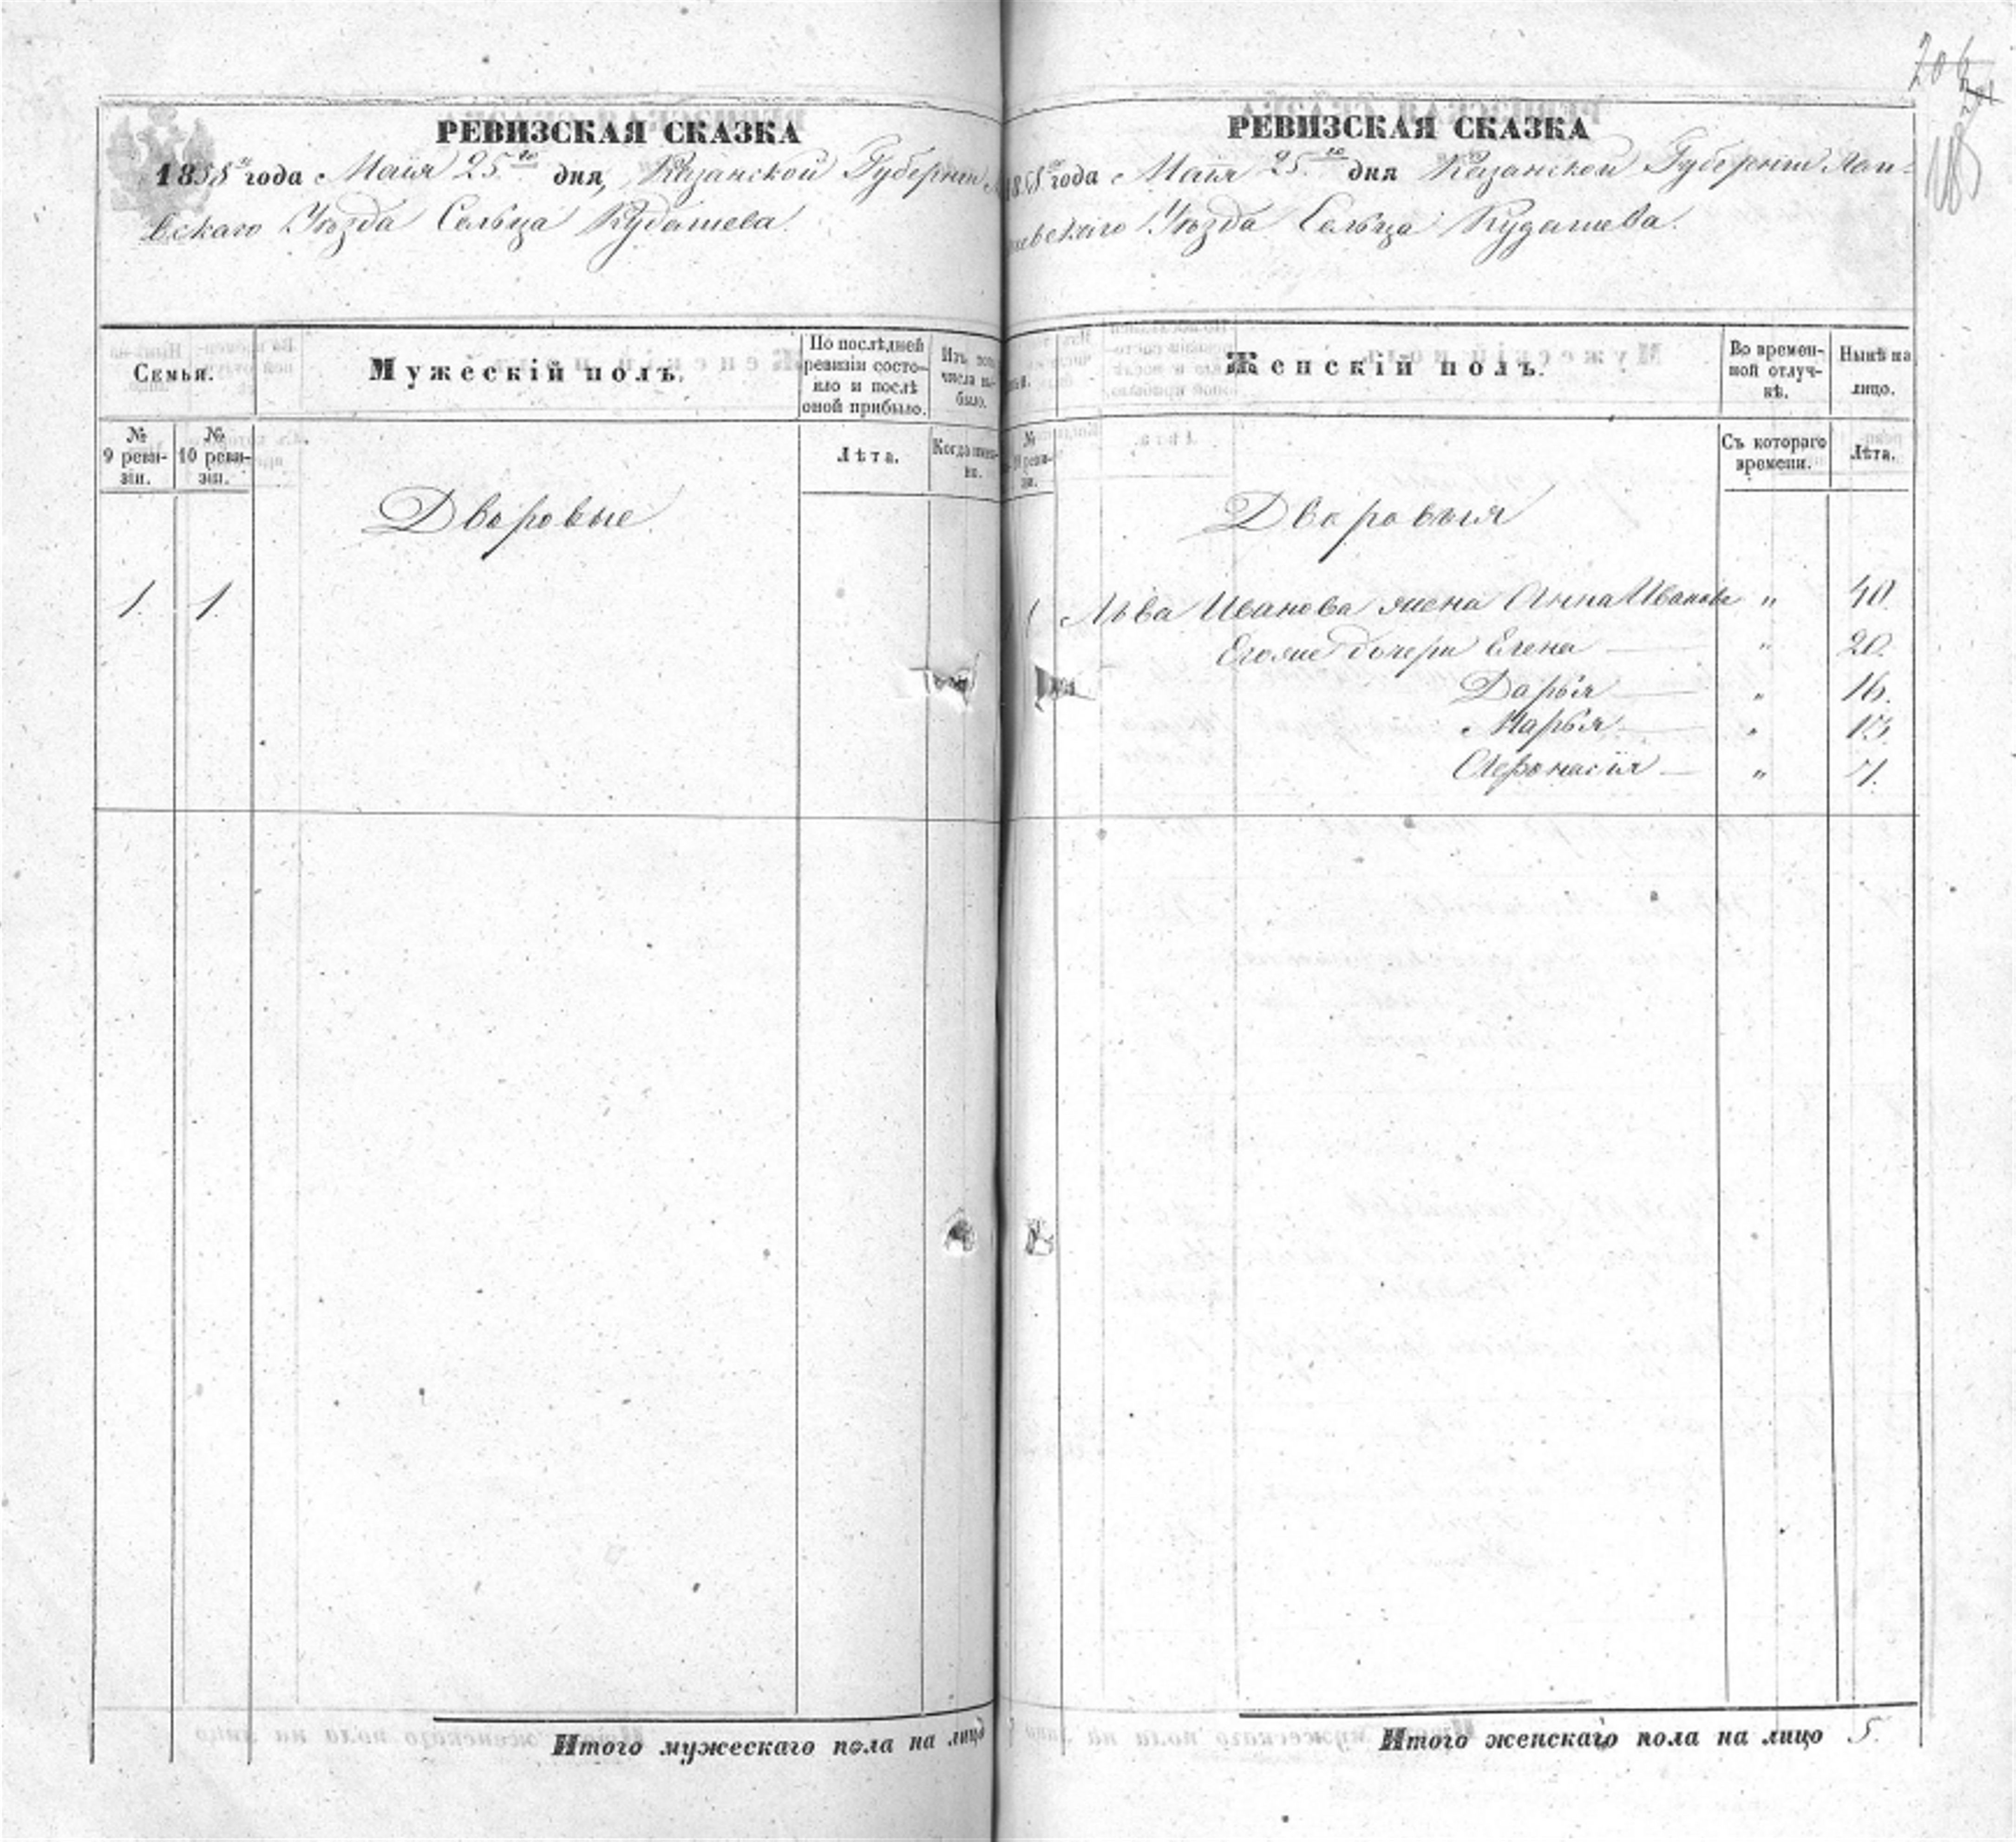 РЕВИЗСКАЯ СКАЗКА
1858 года Маія 25го дня, Казанской Губерніи
вскаго Уѣзда Сельца Кудашева.
Семья.
Мужескій полъ.
По послѣдней ревизіи состояло и послѣ оной прибыло.
Изъ того числа выбыло.
№ 9 ревизіи.
№ 10 ревизіи.
Лѣта.
Когда именно.
Дворовые
1. 1.
Итого мужескаго пола на лицо
206
РЕВИЗСКАЯ СКАЗКА
1858 года Маія 25го дня Казанской Губерніи Лаи-
шевскаго Уѣзда Сельца Кудашева.
Женскій полъ.
Во временной отлучкѣ.
Нынѣ на лицо.
№ ревизіи.
Съ котораго времени.
Лѣта.
Дворовыя
1 Льва Иванова жена Анна Иванова " 40.
Егоже дочери Елена — " 20.
Дарья — " 16.
Марья — " 13.
Афонасія — " 7.
Итого женскаго пола на лицо 5.